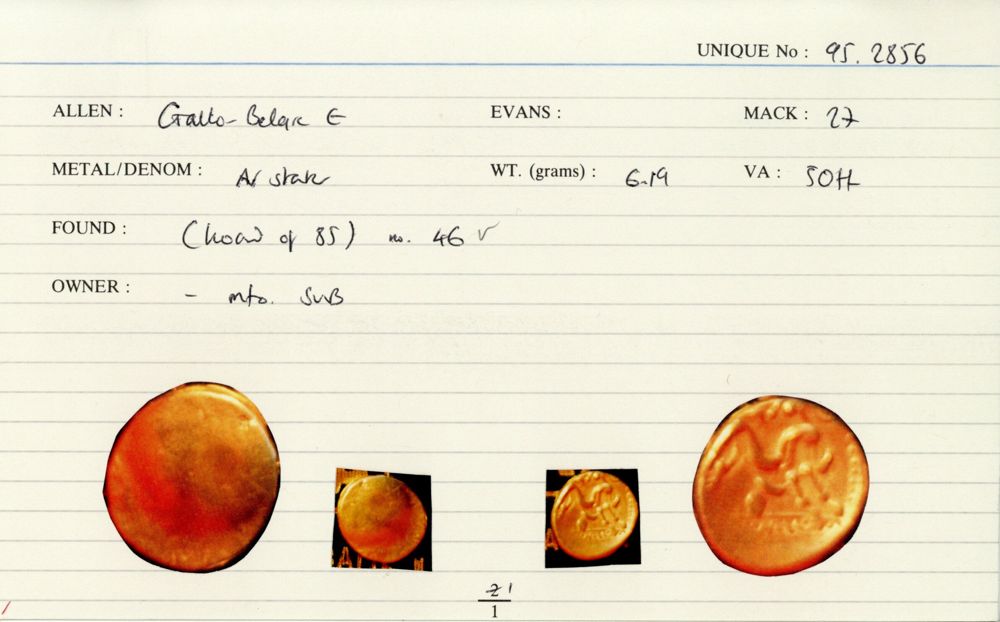 UNIQUE No : 95. 2856
ALLEN : Gallo-Belgic E EVANS : MACK : 27
METAL/DENOM : AV stater WT. (grams) : 6.19 VA :
FOUND : (hoard of 85) no. 46 ✓
OWNER : - info. SUB
1